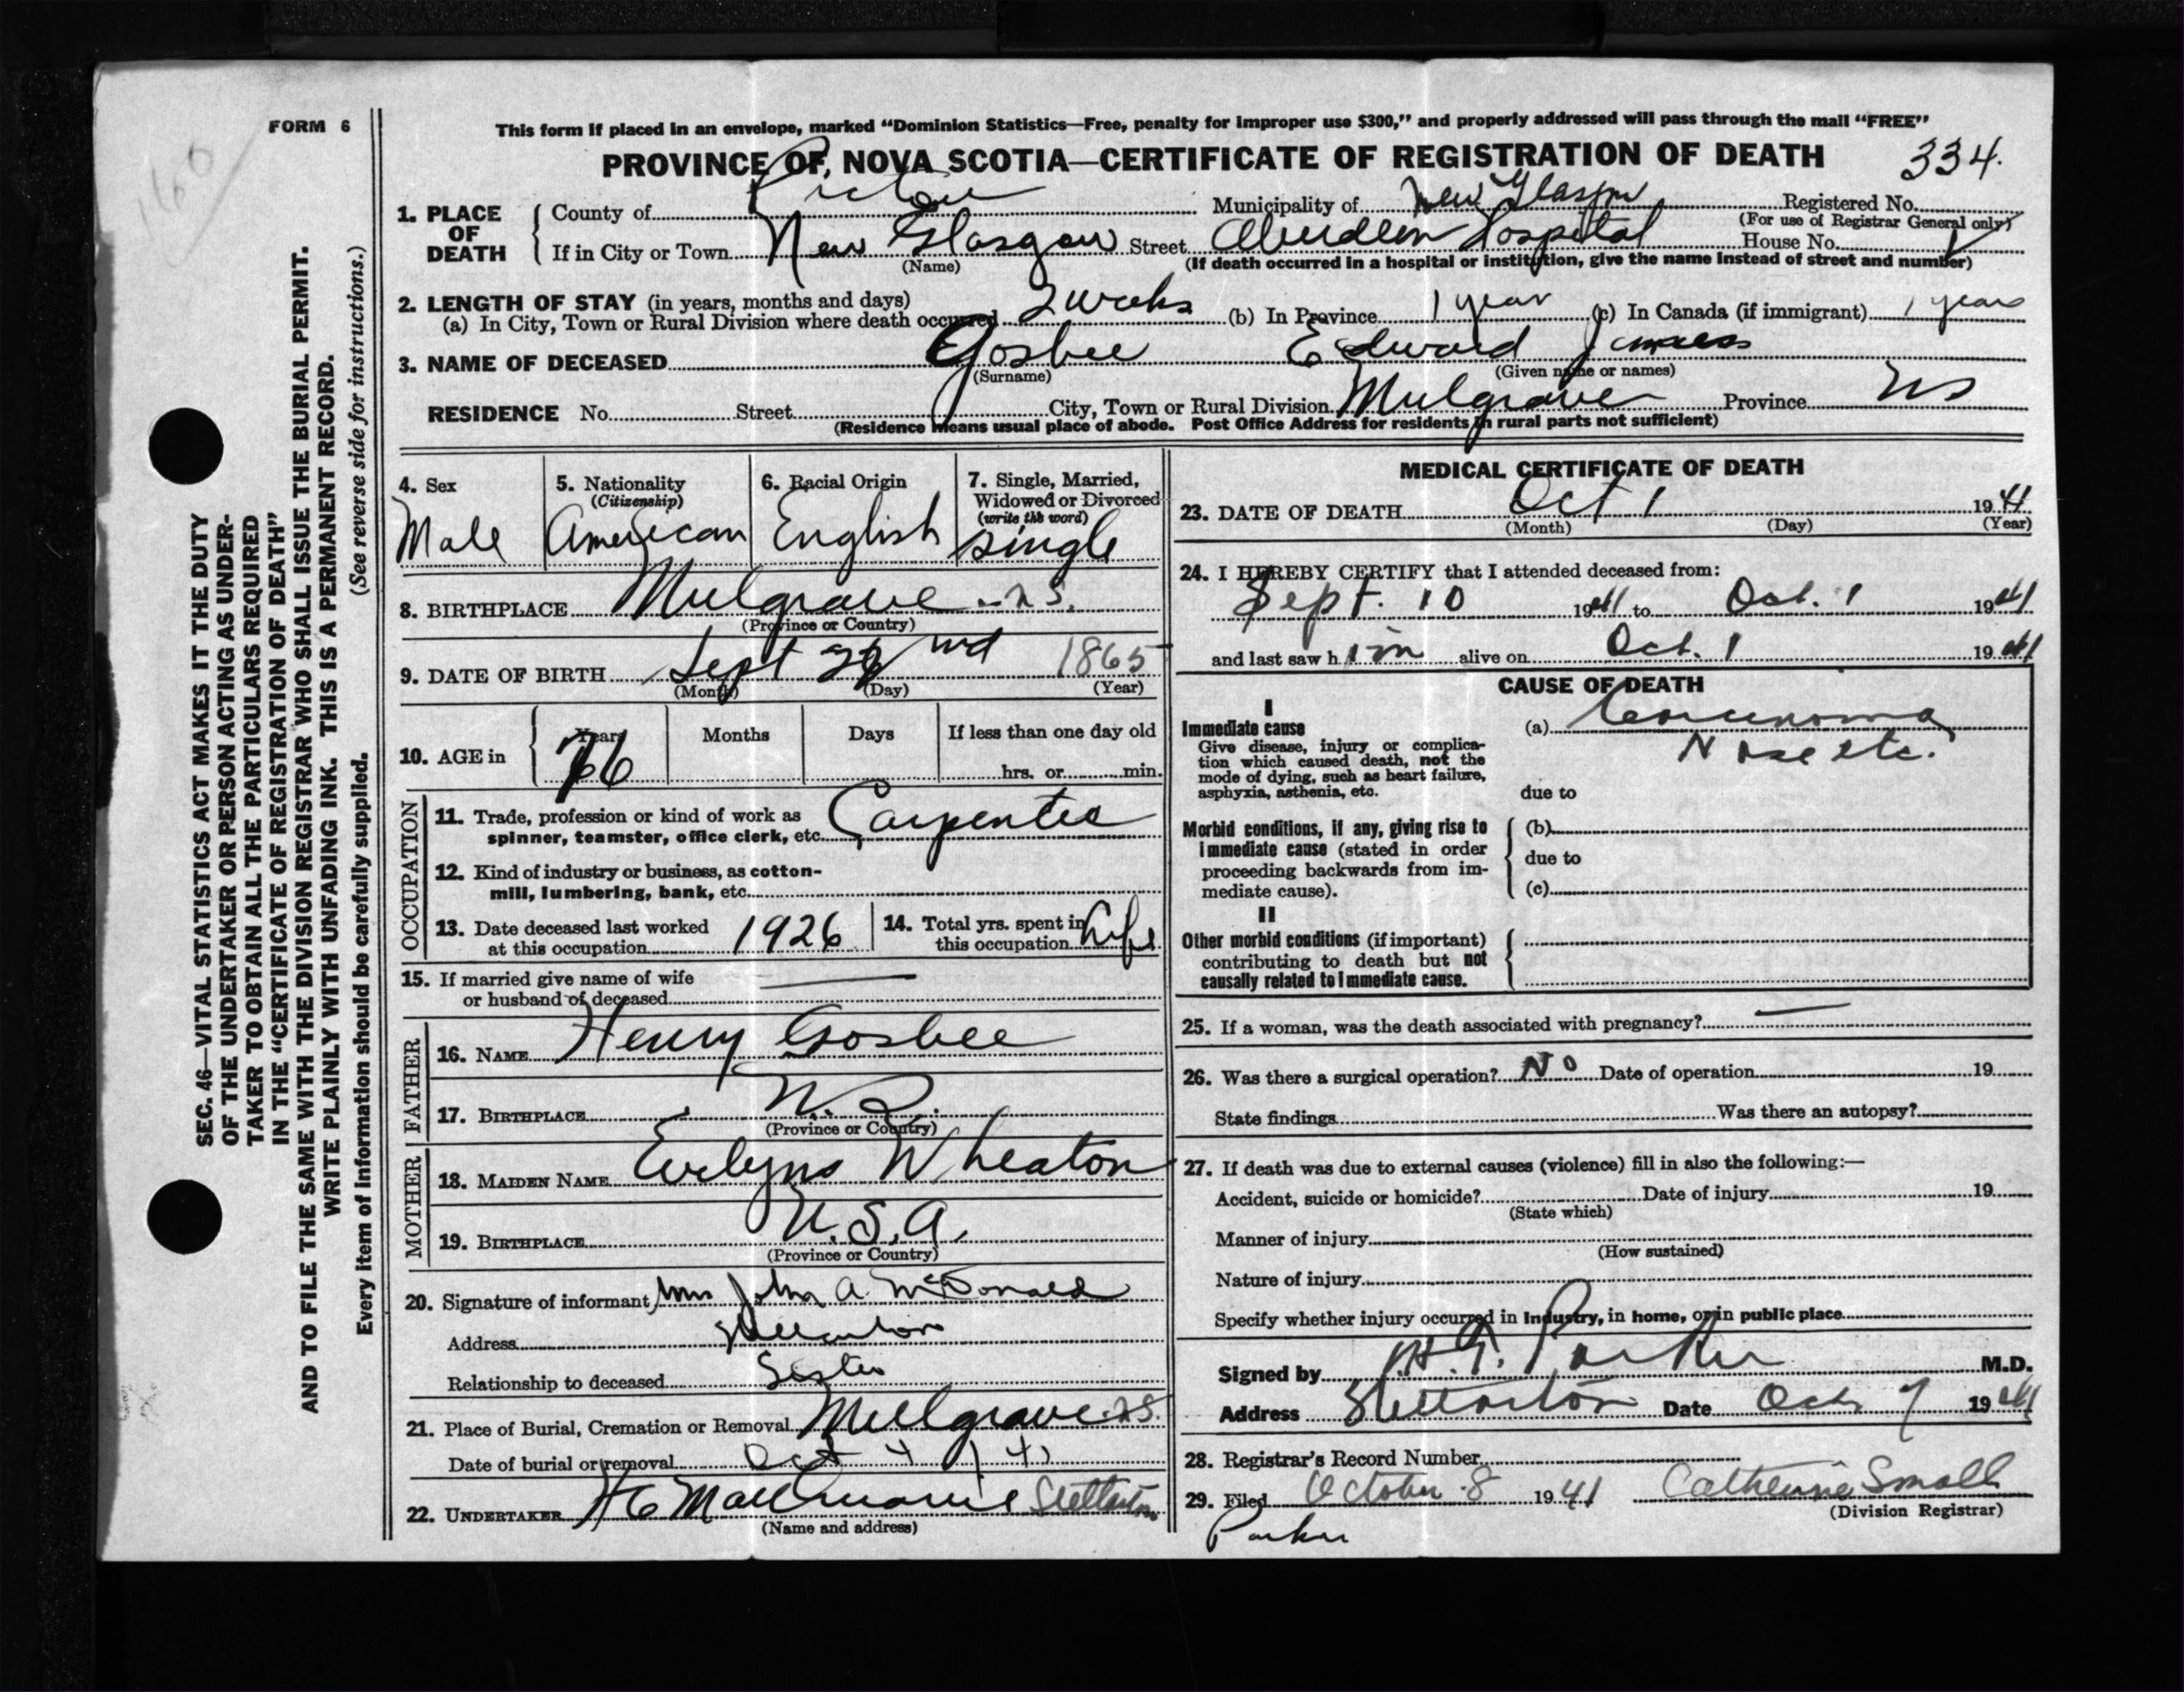 FORM 6
This form if placed in an envelope, marked “Dominion Statistics—Free, penalty for improper use $300,” and properly addressed will pass through the mail “FREE”
PROVINCE OF NOVA SCOTIA—CERTIFICATE OF REGISTRATION OF DEATH 334.
1. PLACE OF DEATH
County of Pictou Municipality of New Glasgow Registered No.
(For use of Registrar General only)
If in City or Town New Glasgow Street Aberdeen Hospital House No.
(Name) (If death occurred in a hospital or institution, give the name instead of street and number)
2. LENGTH OF STAY (in years, months and days)
(a) In City, Town or Rural Division where death occurred 2 weeks (b) In Province 1 year (c) In Canada (if immigrant) 1 year
3. NAME OF DECEASED Gosbee Edward James
(Surname) (Given name or names)
RESIDENCE No. Street City, Town or Rural Division Mulgrave Province NS
(Residence means usual place of abode. Post Office Address for residents in rural parts not sufficient)
4. Sex Male
5. Nationality (Citizenship) American
6. Racial Origin English
7. Single, Married, Widowed or Divorced (write the word) single
8. BIRTHPLACE Mulgrave N.S.
(Province or Country)
9. DATE OF BIRTH Sept 22nd 1865
(Month) (Day) (Year)
10. AGE in Years 76 Months Days If less than one day old
hrs. or min.
OCCUPATION
11. Trade, profession or kind of work as spinner, teamster, office clerk, etc. Carpenter
12. Kind of industry or business, as cotton-mill, lumbering, bank, etc.
13. Date deceased last worked at this occupation 1926
14. Total yrs. spent in this occupation Life
15. If married give name of wife or husband of deceased —
FATHER
16. NAME Henry Gosbee
17. BIRTHPLACE
(Province or Country)
MOTHER
18. MAIDEN NAME Evelyns Wheaton
19. BIRTHPLACE U.S.A.
(Province or Country)
20. Signature of informant Mrs John A. McDonald
Address Stellarton
Relationship to deceased Sister
21. Place of Burial, Cremation or Removal Mulgrave N.S.
Date of burial or removal Oct 4 / 41
22. UNDERTAKER Stellarton
(Name and address)
MEDICAL CERTIFICATE OF DEATH
23. DATE OF DEATH Oct 1 1941
(Month) (Day) (Year)
24. I HEREBY CERTIFY that I attended deceased from:
Sept. 10 1941 to Oct. 1 1941
and last saw him alive on Oct. 1 1941
CAUSE OF DEATH
I
Immediate cause
Give disease, injury or complication which caused death, not the mode of dying, such as heart failure, asphyxia, asthenia, etc.
(a) Carcinoma
Nose etc.
due to
Morbid conditions, if any, giving rise to immediate cause (stated in order proceeding backwards from immediate cause).
(b)
due to
(c)
II
Other morbid conditions (if important) contributing to death but not causally related to immediate cause.
25. If a woman, was the death associated with pregnancy? —
26. Was there a surgical operation? No Date of operation 19
State findings Was there an autopsy?
27. If death was due to external causes (violence) fill in also the following:—
Accident, suicide or homicide? Date of injury 19
(State which)
Manner of injury
(How sustained)
Nature of injury
Specify whether injury occurred in Industry, in home, or in public place
Signed by Parker M.D.
Address Stellarton Date Oct 7 1941
28. Registrar's Record Number
29. Filed October 8 1941 Catherine Small
(Division Registrar)
Parker
SEC. 46—VITAL STATISTICS ACT MAKES IT THE DUTY
OF THE UNDERTAKER OR PERSON ACTING AS UNDER-
TAKER TO OBTAIN ALL THE PARTICULARS REQUIRED
IN THE “CERTIFICATE OF REGISTRATION OF DEATH”
AND TO FILE THE SAME WITH THE DIVISION REGISTRAR WHO SHALL ISSUE THE BURIAL PERMIT.
WRITE PLAINLY WITH UNFADING INK. THIS IS A PERMANENT RECORD.
Every item of information should be carefully supplied. (See reverse side for instructions.)
160